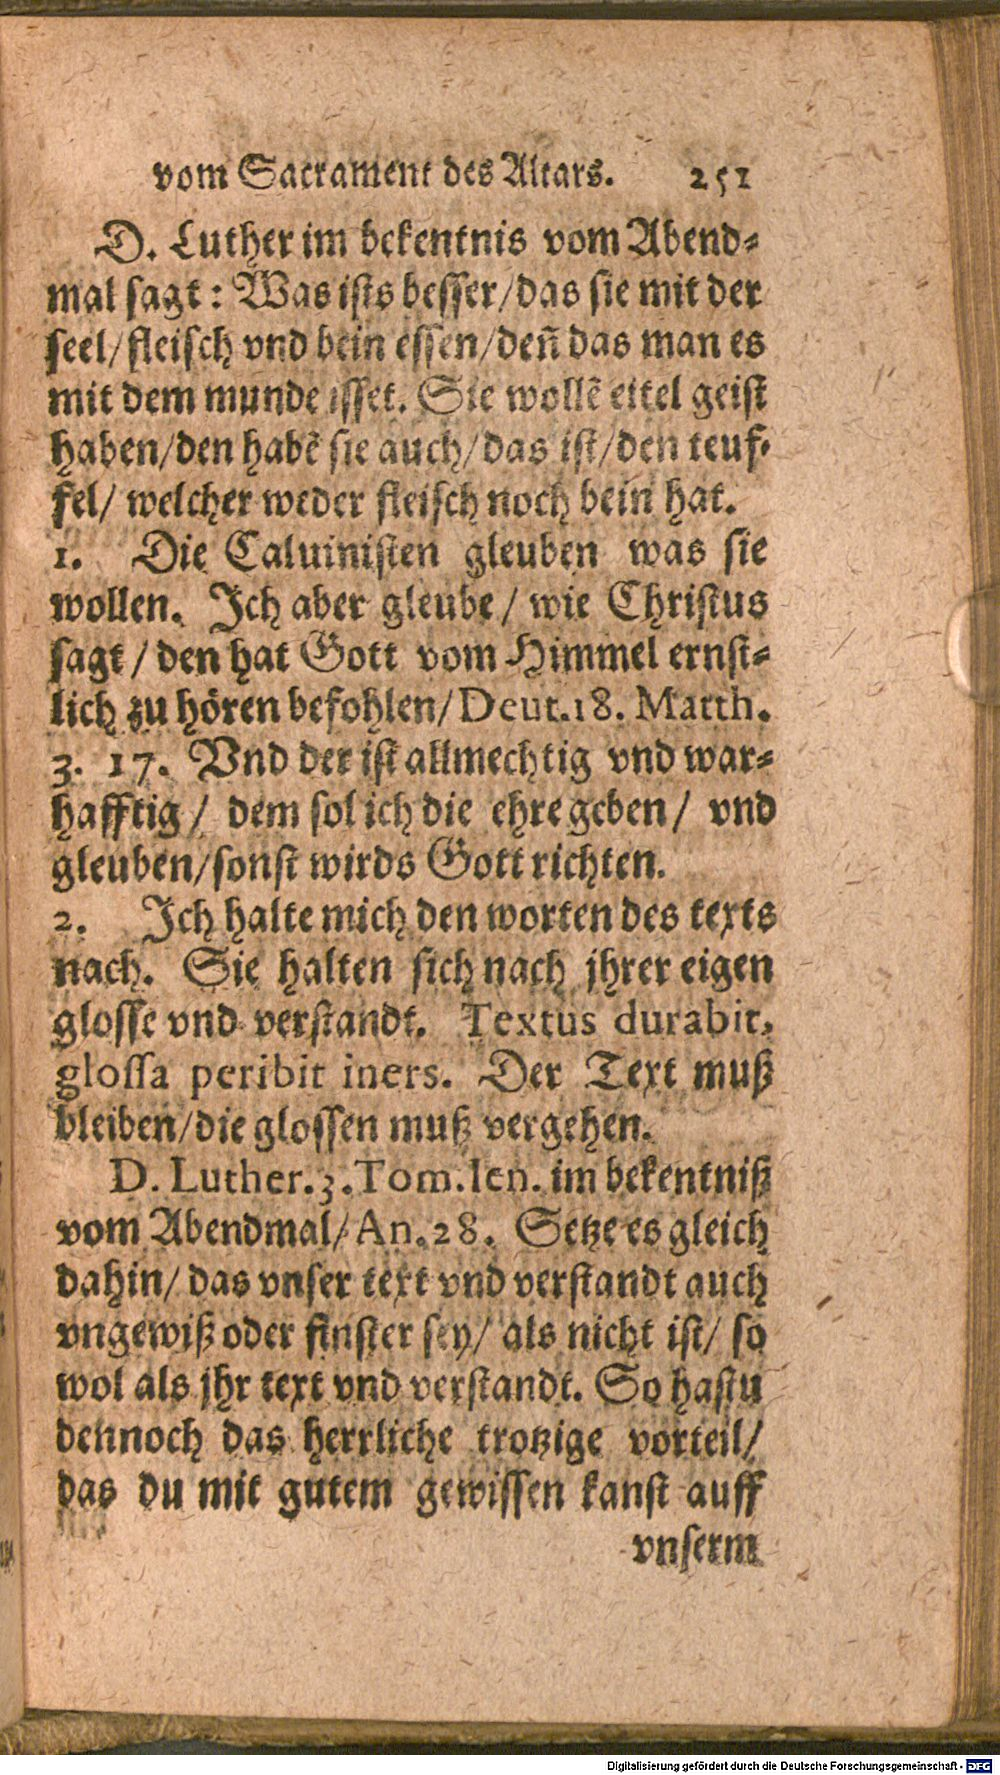 vom Sacrament des Altars. 251
D. Luther im bekentnis vom Abend-
mal sagt: Was ists besser/das sie mit der
seel/fleisch vnd bein essen/deñ das man es
mit dem munde isset. Sie wollẽ eitel geist
haben/den habẽ sie auch/das ist/den teuf-
fel/ welcher weder fleisch noch bein hat.
1. Die Caluinisten gleuben was sie
wollen. Ich aber gleube/ wie Christus
sagt/den hat Gott vom Himmel ernst-
lich zu hören befohlen/Deut.18. Matth.
3. 17. Vnd der ist allmechtig vnd war-
hafftig/ dem sol ich die ehre geben/ vnd
gleuben/sonst wirds Gott richten.
2. Ich halte mich den worten des texts
nach. Sie halten sich nach jhrer eigen
glosse vnd verstandt. Textus durabit,
glossa peribit iners. Der Text muß
bleiben/die glossen muß vergehen.
D. Luther.3.Tom.Ien. im bekentniß
vom Abendmal/An.28. Setze es gleich
dahin/ das vnser text vnd verstandt auch
vngewiß oder finster sey/ als nicht ist/ so
wol als jhr text vnd verstandt. So hastu
dennoch das herrliche trotzige vorteil/
das du mit gutem gewissen kanst auff
vnserm
Digitalisierung gefördert durch die Deutsche Forschungsgemeinschaft - DFG